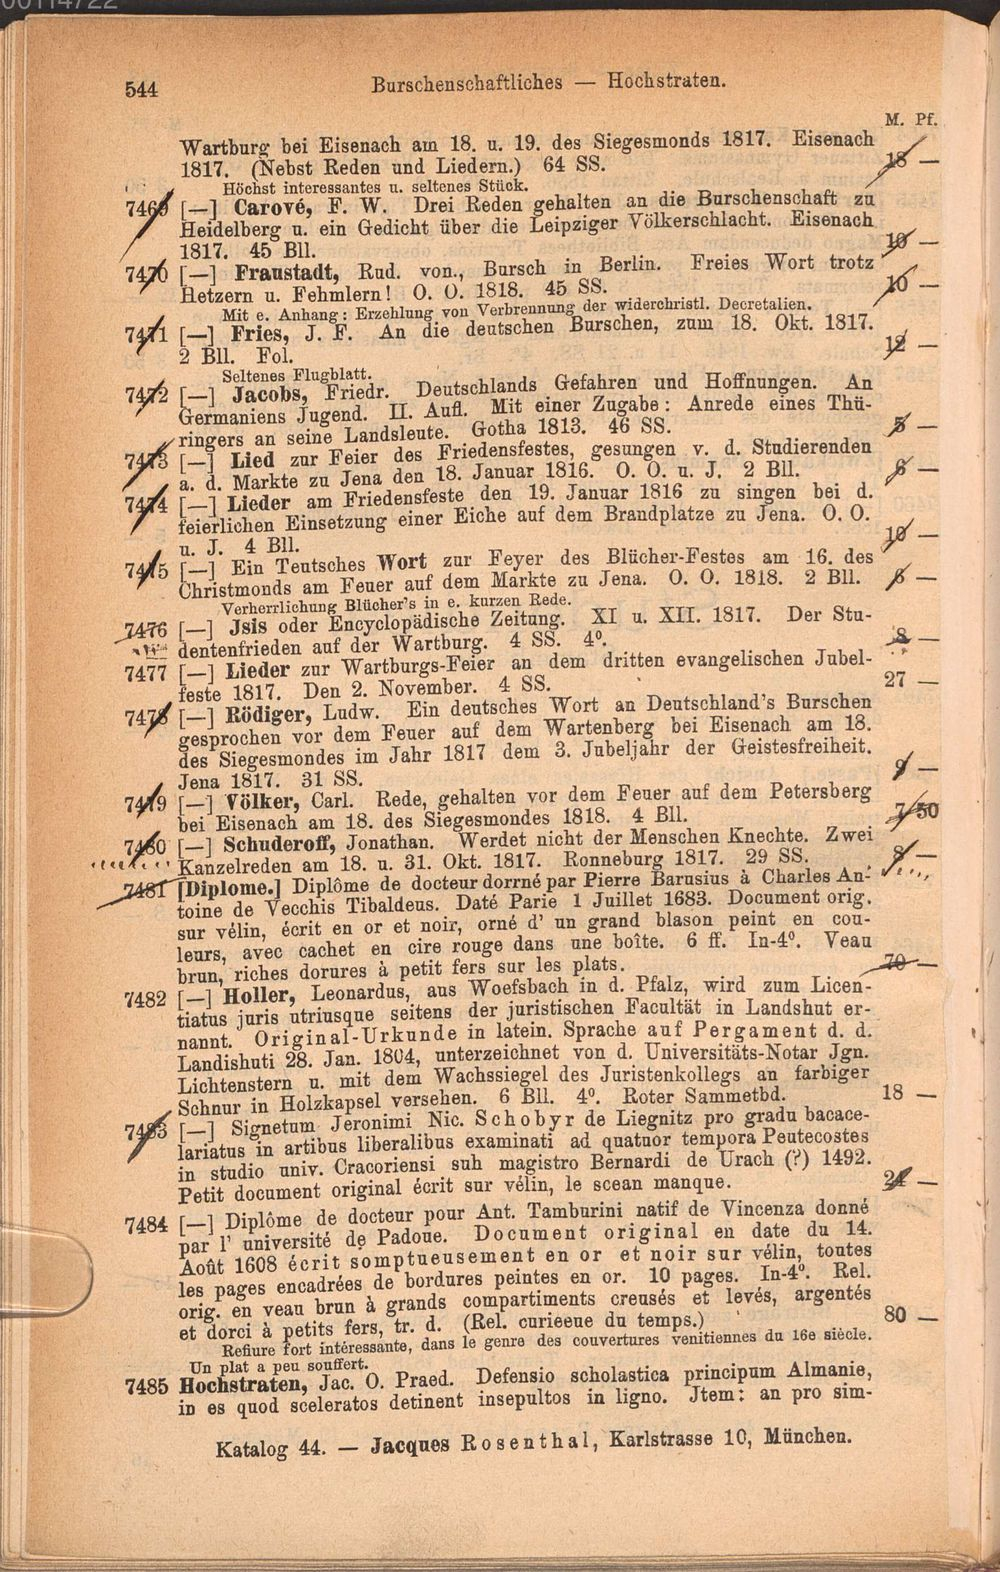 00114722
544
Burschenschaftliches — Hochstraten.
M. Pf.
Wartburg bei Eisenach am 18. u. 19. des Siegesmonds 1817. Eisenach
1817. (Nebst Reden und Liedern.) 64 SS. 18 —
Höchst interessantes u. seltenes Stück.
7469 [—] Carové, F. W. Drei Reden gehalten an die Burschenschaft zu
Heidelberg u. ein Gedicht über die Leipziger Völkerschlacht. Eisenach
1817. 45 Bll. 10 —
7470 [—] Fraustadt, Rud. von., Bursch in Berlin. Freies Wort trotz
Hetzern u. Fehmlern! O. O. 1818. 45 SS. 10 —
Mit e. Anhang: Erzehlung von Verbrennung der widerchristl. Decretalien.
7471 [—] Fries, J. F. An die deutschen Burschen, zum 18. Okt. 1817.
2 Bll. Fol. 12 —
Seltenes Flugblatt.
7472 [—] Jacobs, Friedr. Deutschlands Gefahren und Hoffnungen. An
Germaniens Jugend. II. Aufl. Mit einer Zugabe: Anrede eines Thü-
ringers an seine Landsleute. Gotha 1813. 46 SS. 5 —
7473 [—] Lied zur Feier des Friedensfestes, gesungen v. d. Studierenden
a. d. Markte zu Jena den 18. Januar 1816. O. O. u. J. 2 Bll. 6 —
7474 [—] Lieder am Friedensfeste den 19. Januar 1816 zu singen bei d.
feierlichen Einsetzung einer Eiche auf dem Brandplatze zu Jena. O. O.
u. J. 4 Bll. 10 —
7475 [—] Ein Teutsches Wort zur Feyer des Blücher-Festes am 16. des
Christmonds am Feuer auf dem Markte zu Jena. O. O. 1818. 2 Bll. 6 —
Verherrlichung Blücher's in e. kurzen Rede.
7476 [—] Jsis oder Encyclopädische Zeitung. XI u. XII. 1817. Der Stu-
dentenfrieden auf der Wartburg. 4 SS. 4⁰. 8 —
7477 [—] Lieder zur Wartburgs-Feier an dem dritten evangelischen Jubel-
feste 1817. Den 2. November. 4 SS. 27 —
7478 [—] Rödiger, Ludw. Ein deutsches Wort an Deutschland's Burschen
gesprochen vor dem Feuer auf dem Wartenberg bei Eisenach am 18.
des Siegesmondes im Jahr 1817 dem 3. Jubeljahr der Geistesfreiheit.
Jena 1817. 31 SS. 9 —
7479 [—] Völker, Carl. Rede, gehalten vor dem Feuer auf dem Petersberg
bei Eisenach am 18. des Siegesmondes 1818. 4 Bll. 7 50
7480 [—] Schuderoff, Jonathan. Werdet nicht der Menschen Knechte. Zwei
Kanzelreden am 18. u. 31. Okt. 1817. Ronneburg 1817. 29 SS. 8 —
7481 [Diplome.] Diplôme de docteur dorrné par Pierre Barusius à Charles An-
toine de Vecchis Tibaldeus. Daté Parie 1 Juillet 1683. Document orig.
sur vélin, écrit en or et noir, orné d' un grand blason peint en cou-
leurs, avec cachet en cire rouge dans une boîte. 6 ff. In-4⁰. Veau
brun, riches dorures à petit fers sur les plats. 70 —
7482 [—] Holler, Leonardus, aus Woefsbach in d. Pfalz, wird zum Licen-
tiatus juris utriusque seitens der juristischen Facultät in Landshut er-
nannt. Original-Urkunde in latein. Sprache auf Pergament d. d.
Landishuti 28. Jan. 1804, unterzeichnet von d. Universitäts-Notar Jgn.
Lichtenstern u. mit dem Wachssiegel des Juristenkollegs an farbiger
Schnur in Holzkapsel versehen. 6 Bll. 4⁰. Roter Sammetbd. 18 —
7483 [—] Signetum Jeronimi Nic. Schobyr de Liegnitz pro gradu bacace-
lariatus in artibus liberalibus examinati ad quatuor tempora Peutecostes
in studio univ. Cracoriensi suh magistro Bernardi de Urach (?) 1492.
Petit document original écrit sur vélin, le scean manque. 24 —
7484 [—] Diplôme de docteur pour Ant. Tamburini natif de Vincenza donné
par l' université de Padoue. Document original en date du 14.
Août 1608 écrit somptueusement en or et noir sur vélin, toutes
les pages encadrées de bordures peintes en or. 10 pages. In-4⁰. Rel.
orig. en veau brun à grands compartiments creusés et levés, argentés
et dorci à petits fers, tr. d. (Rel. curieeue du temps.) 80 —
Refiure fort intéressante, dans le genre des couvertures venitiennes du 16e siècle.
Un plat a peu souffert.
7485 Hochstraten, Jac. O. Praed. Defensio scholastica principum Almanie,
in es quod sceleratos detinent insepultos in ligno. Jtem: an pro sim-
Katalog 44. — Jacques Rosenthal, Karlstrasse 10, München.